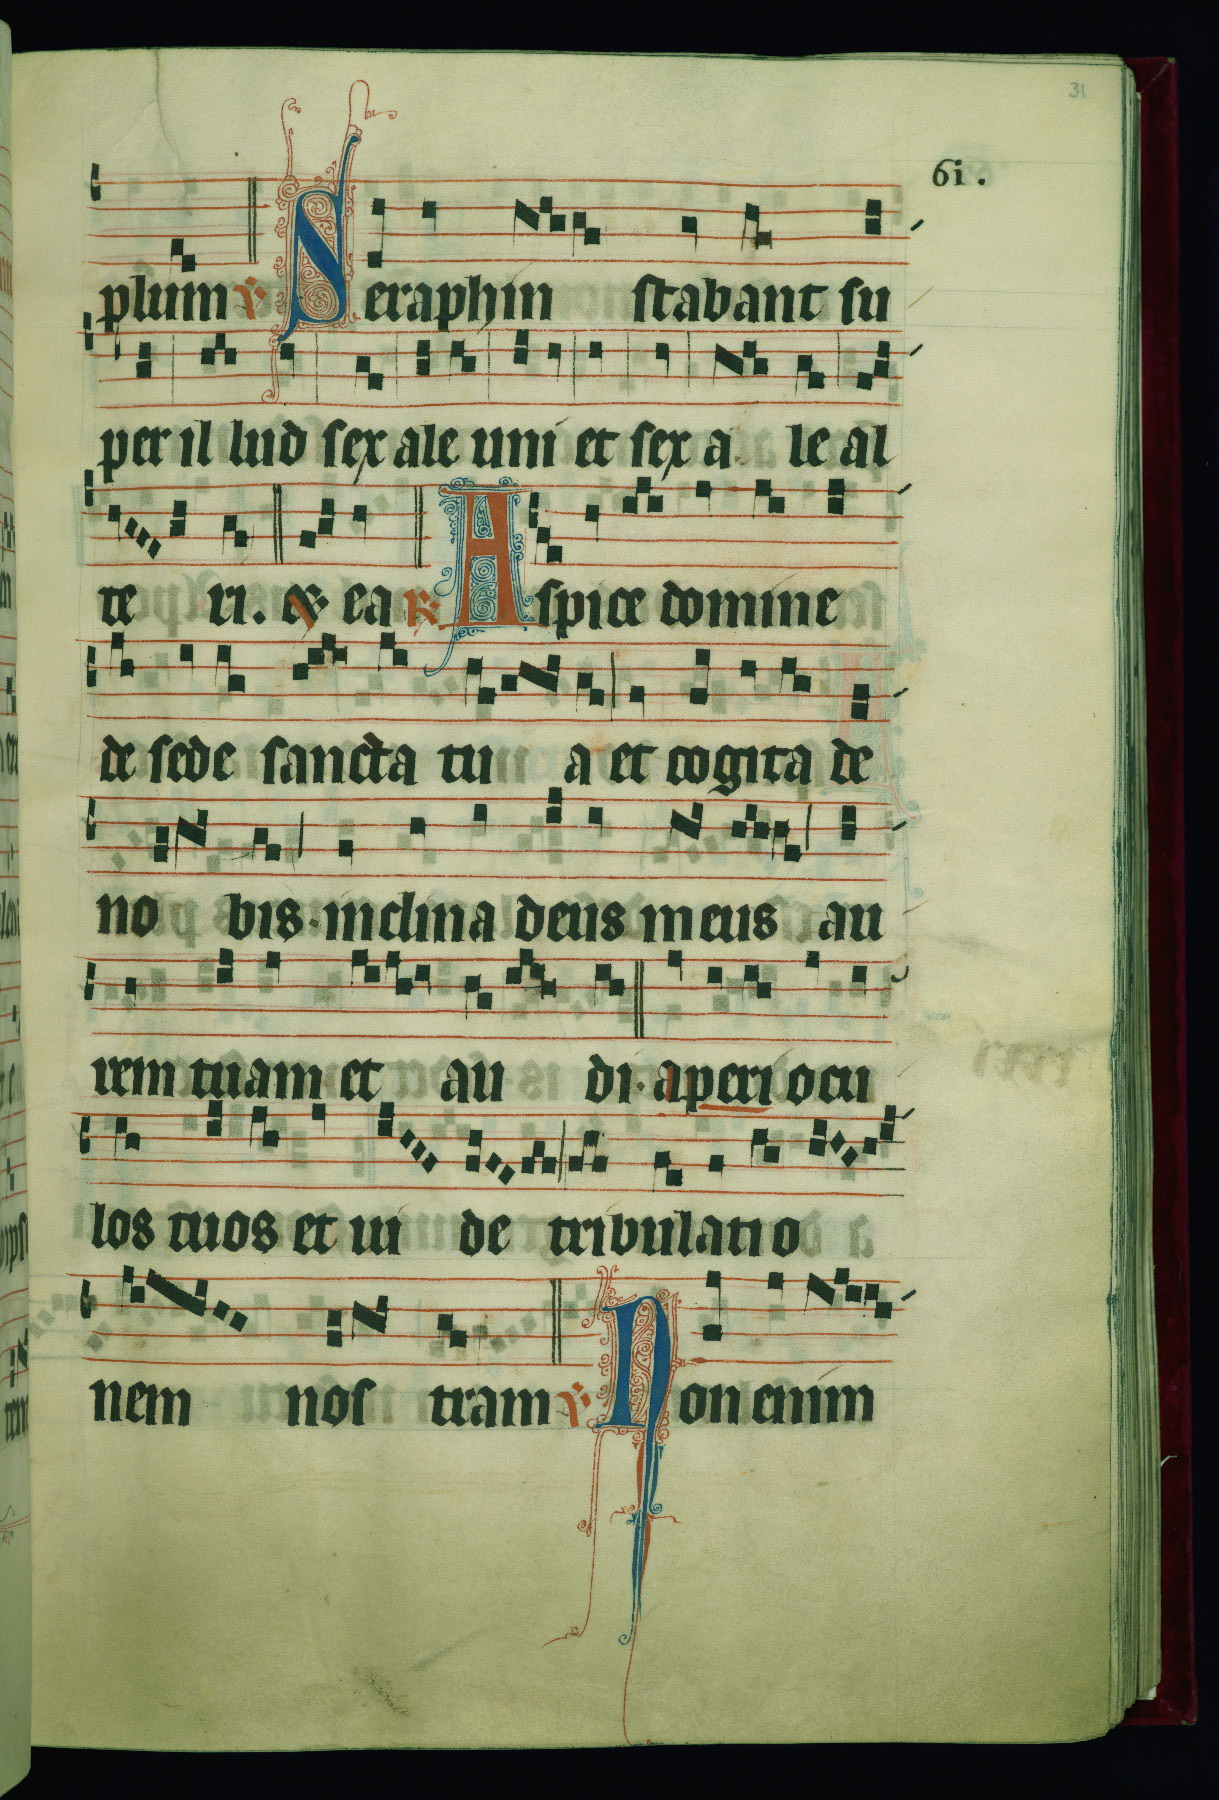 31
61.
plum ℣ Seraphin stabant su
per il lud sex ale uni et sex a le al
te ri. & ea ℟ Aspice domine
de sede sancta tu a et cogita de
no bis. inclina deus meus au
rem tuam et au di. aperi ocu
los tuos et ui de tribulatio
nem nos tram ℣ Non enim